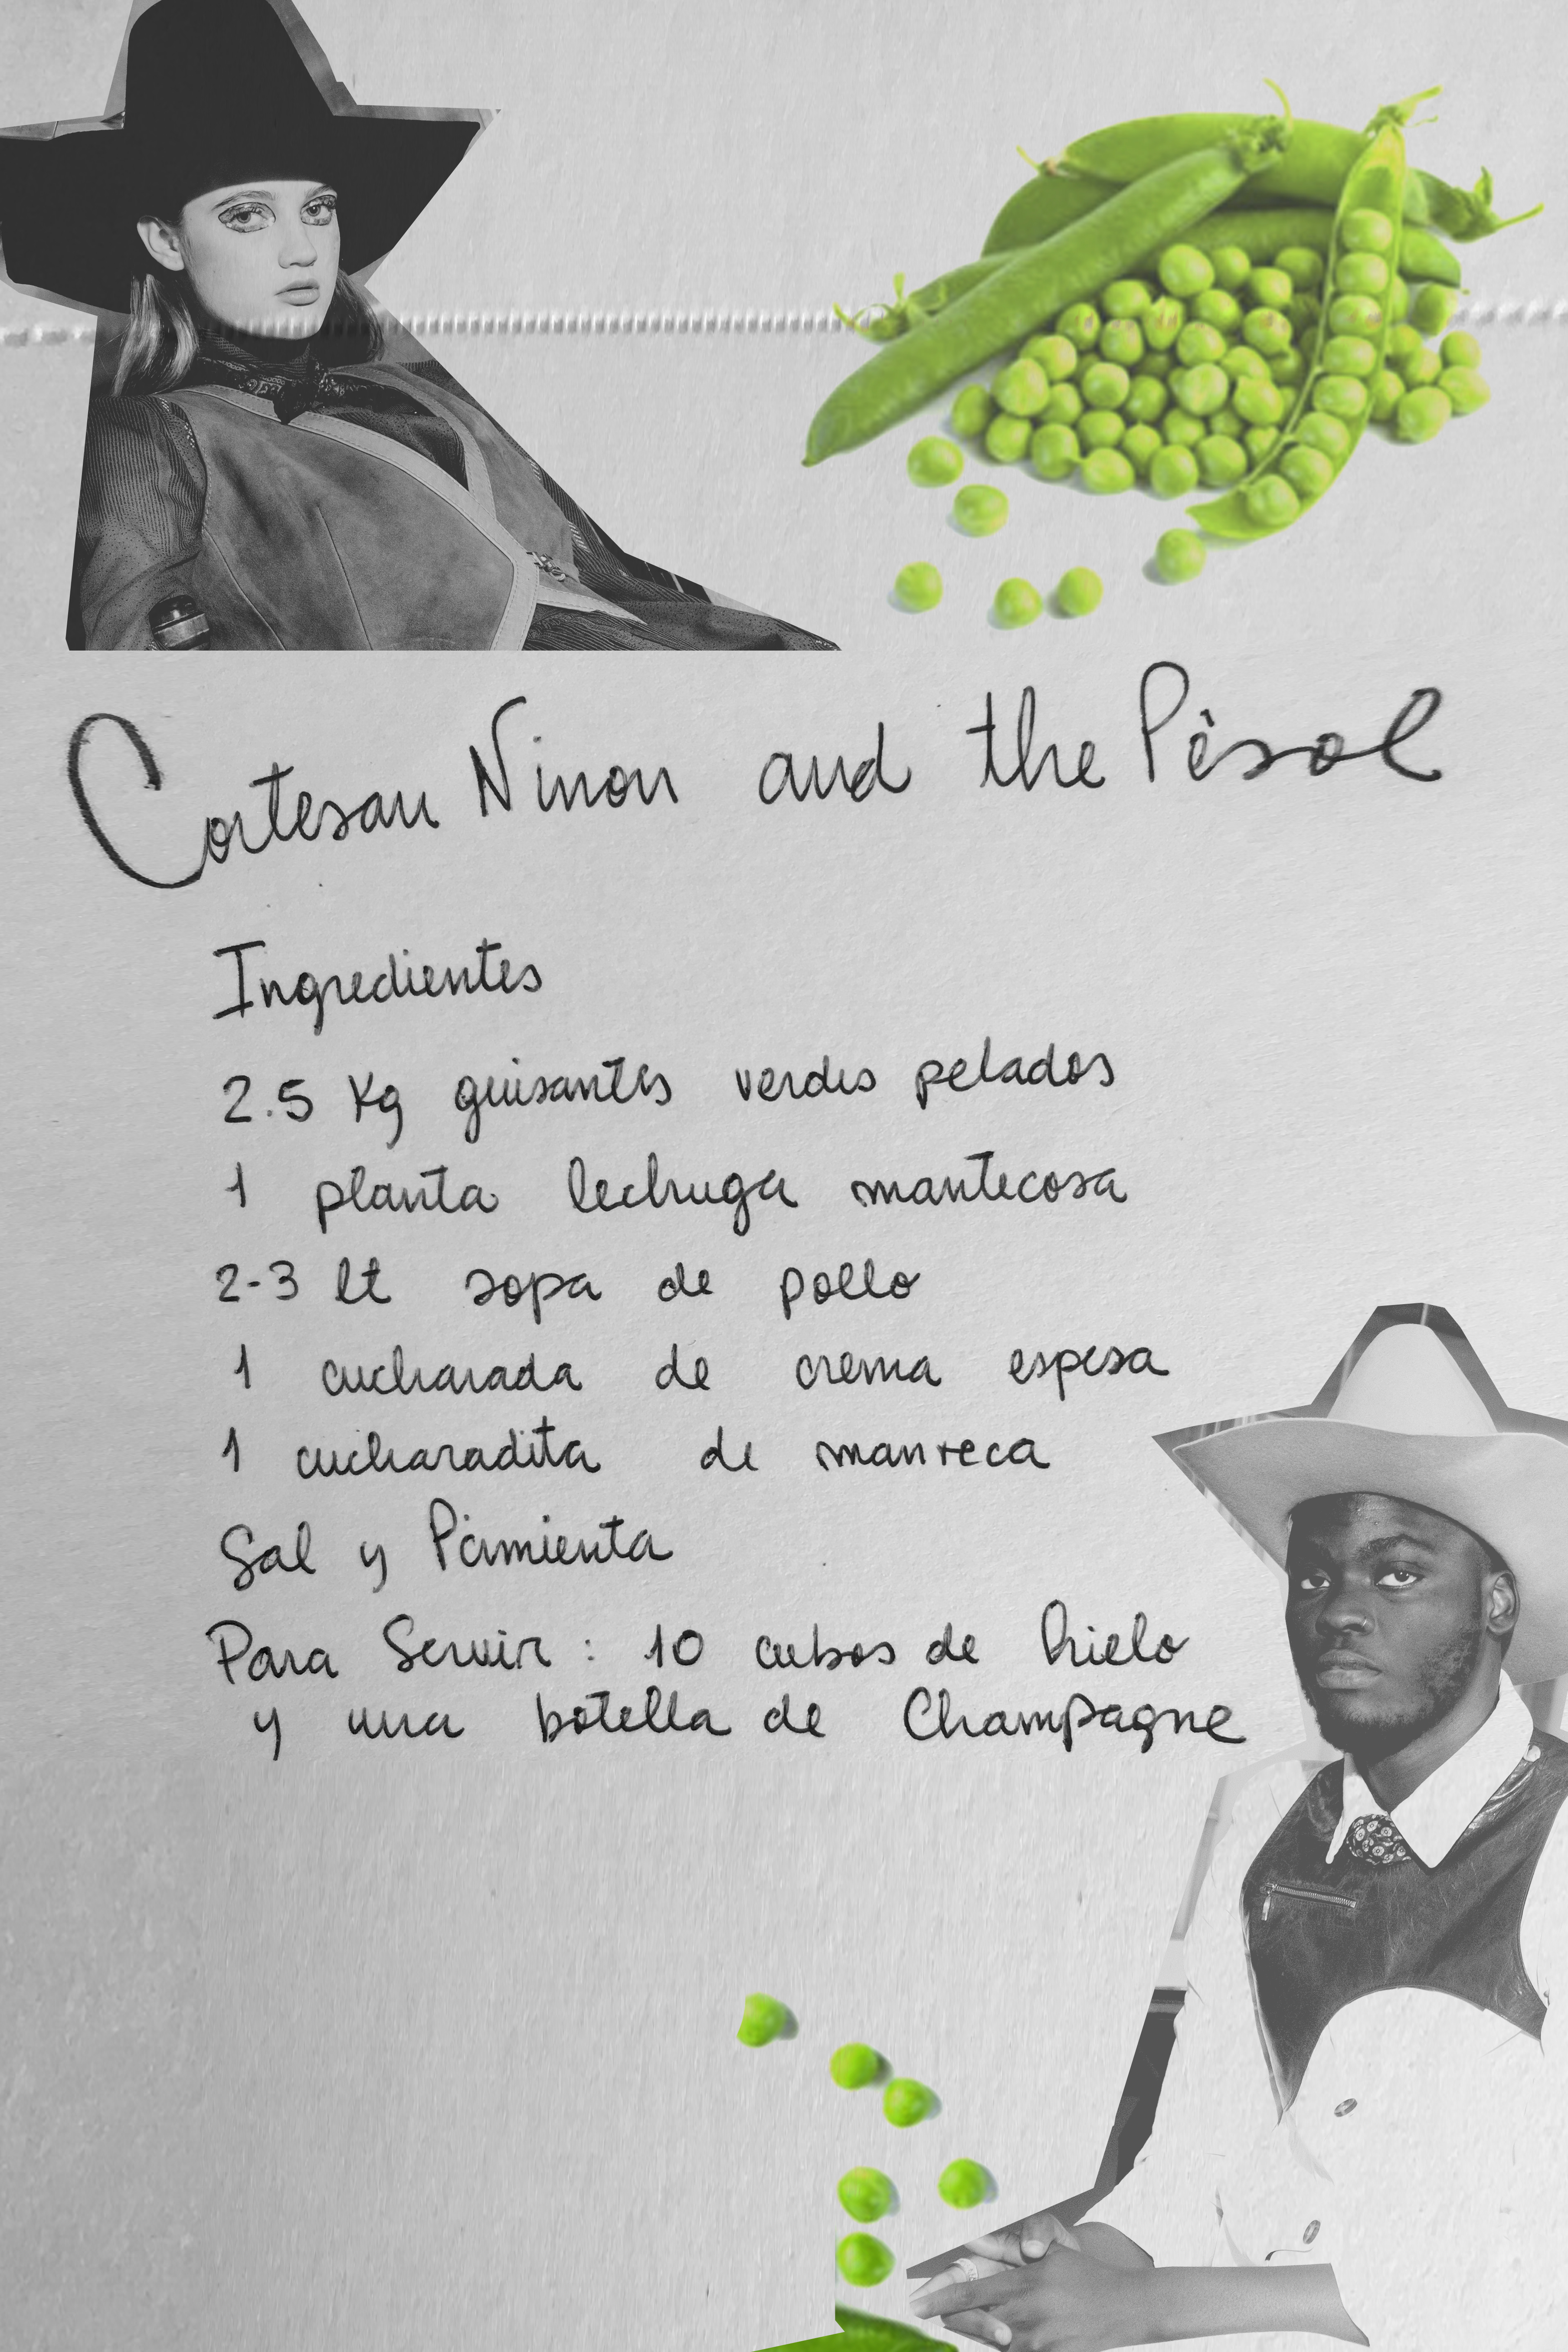 Cortesan Ninon and the Pèsol
Ingredientes
2.5 Kg guisantes verdes pelados
1 planta lechuga mantecosa
2-3 lt sopa de pollo
1 cucharada de crema espesa
1 cucharadita de manteca
Sal y Pimienta
Para Servir: 10 cubos de hielo
y una botella de Champagne